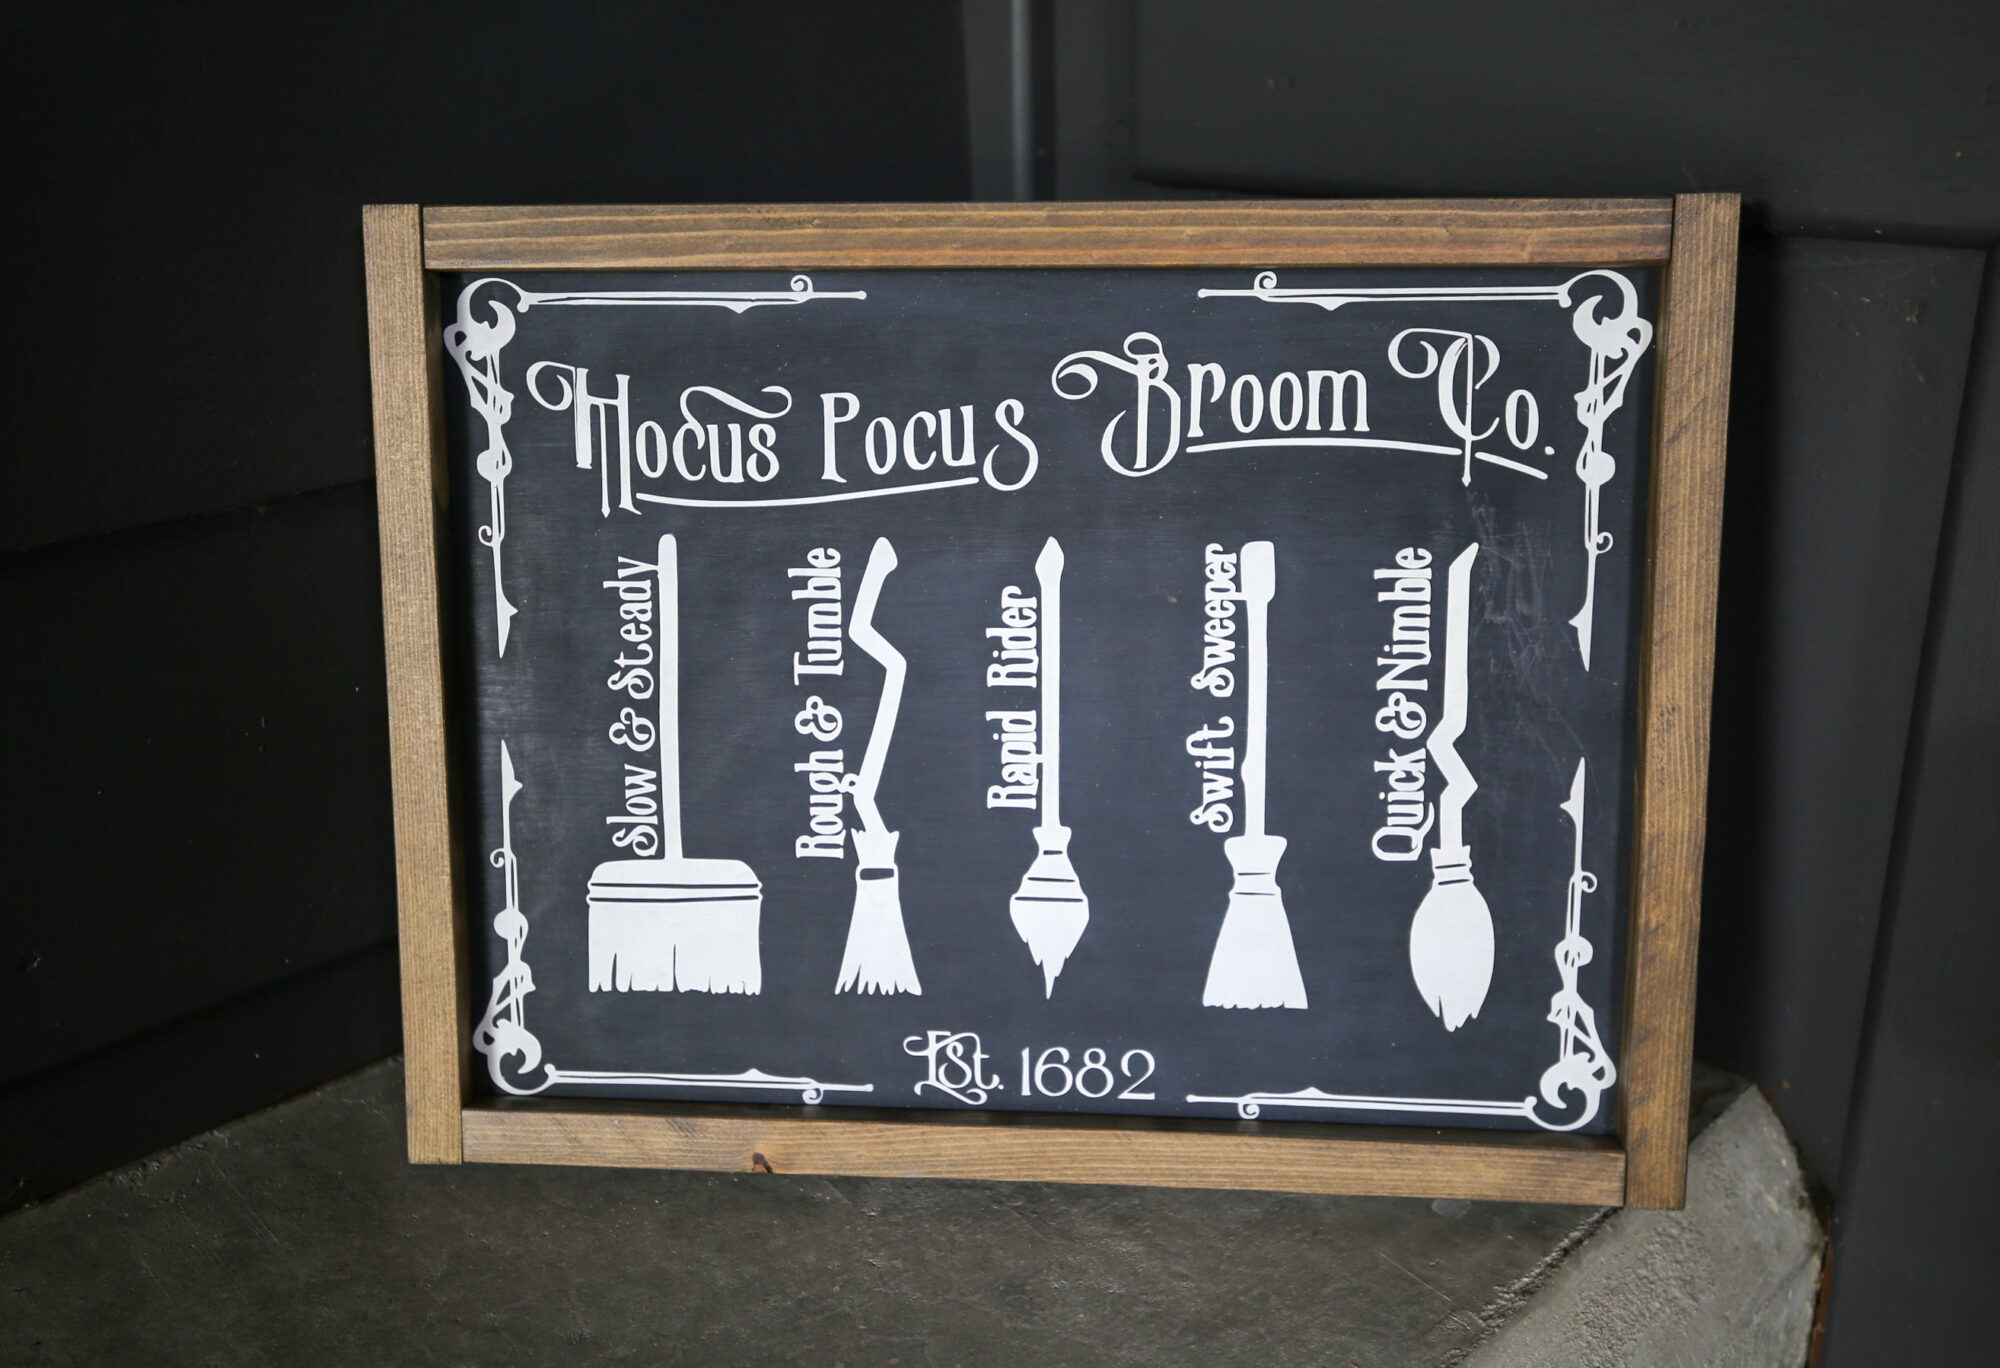 Hocus Pocus Broom Co.
Slow & Steady
Rough & Tumble
Rapid Rider
Swift Sweeper
Quick & Nimble
Est. 1682